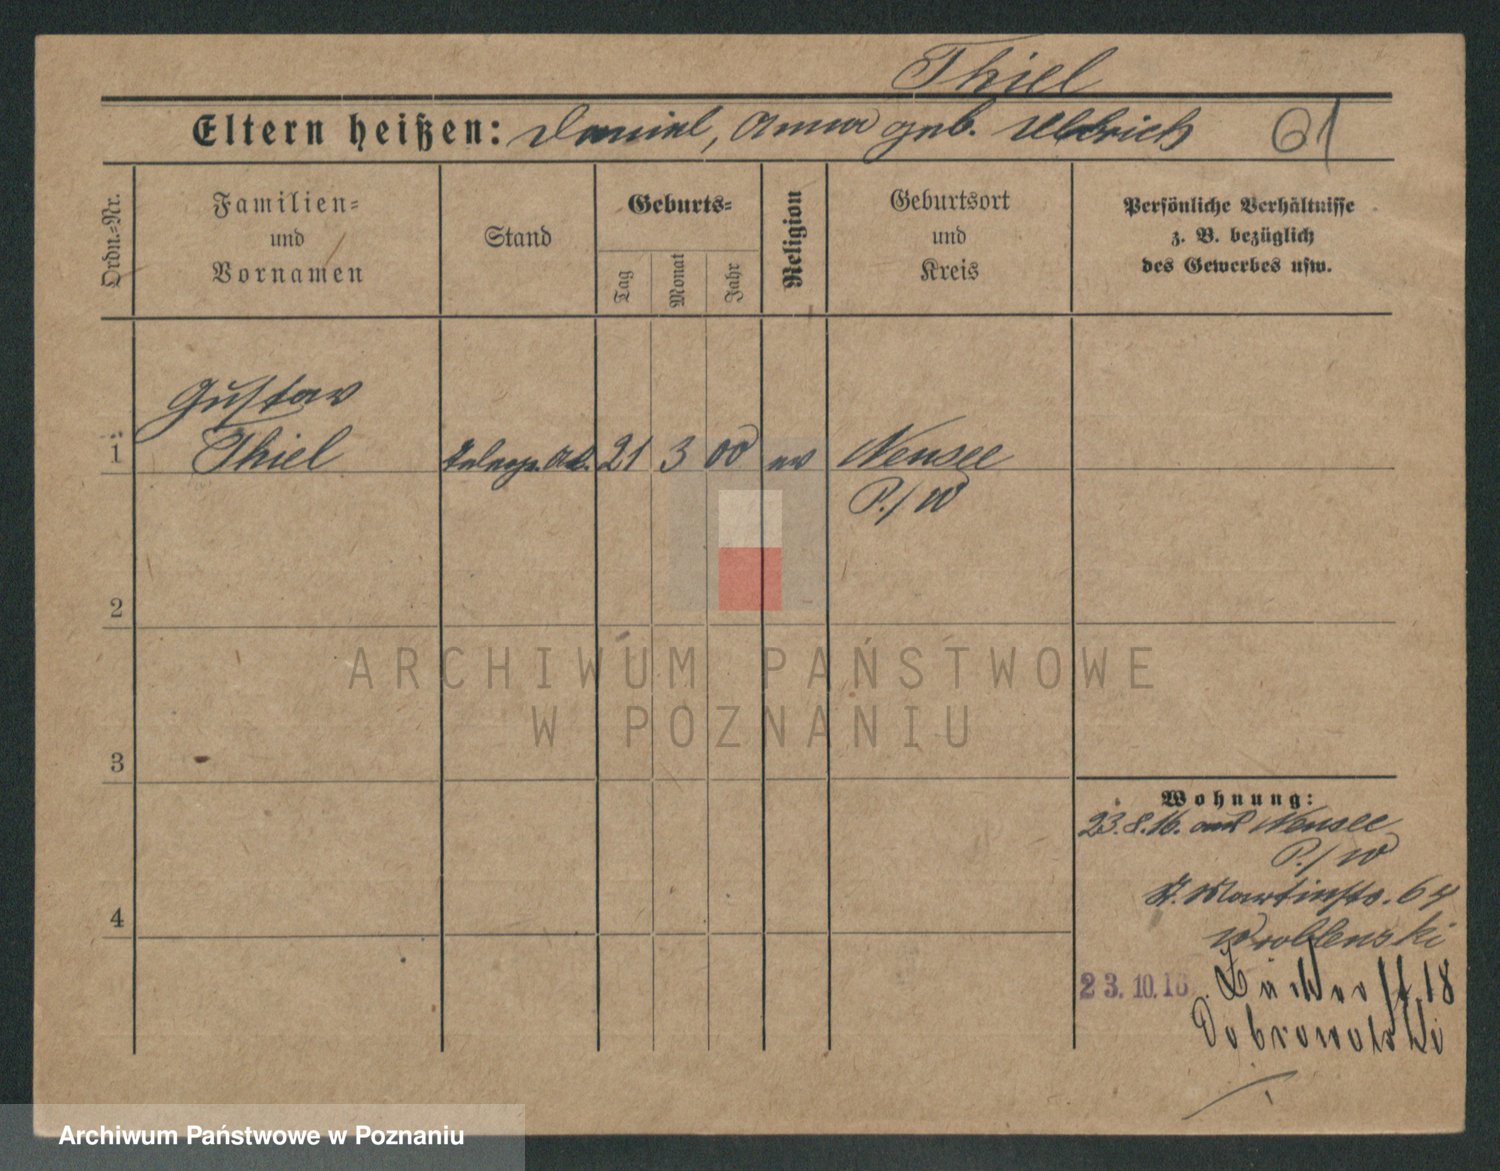 Thiel
Eltern heißen: Daniel, Anna geb. Ulbrich
61
Ordn.=Nr.
Familien=
und
Vornamen
Stand
Geburts=
Tag
Monat
Jahr
Religion
Geburtsort
und
Kreis
Persönliche Verhältnisse
z. B. bezüglich
des Gewerbes usw.
Gustav
1
Thiel
21 3 00 ev Neusee
P./W
2
ARCHIWUM PAŃSTWOWE
W POZNANIU
3
Wohnung:
23.8.16. aus Neusee
P./W
St. Martinstr. 64
Wroblewski
4
23.10.16. 18
Dobrowolski
Archiwum Państwowe w Poznaniu